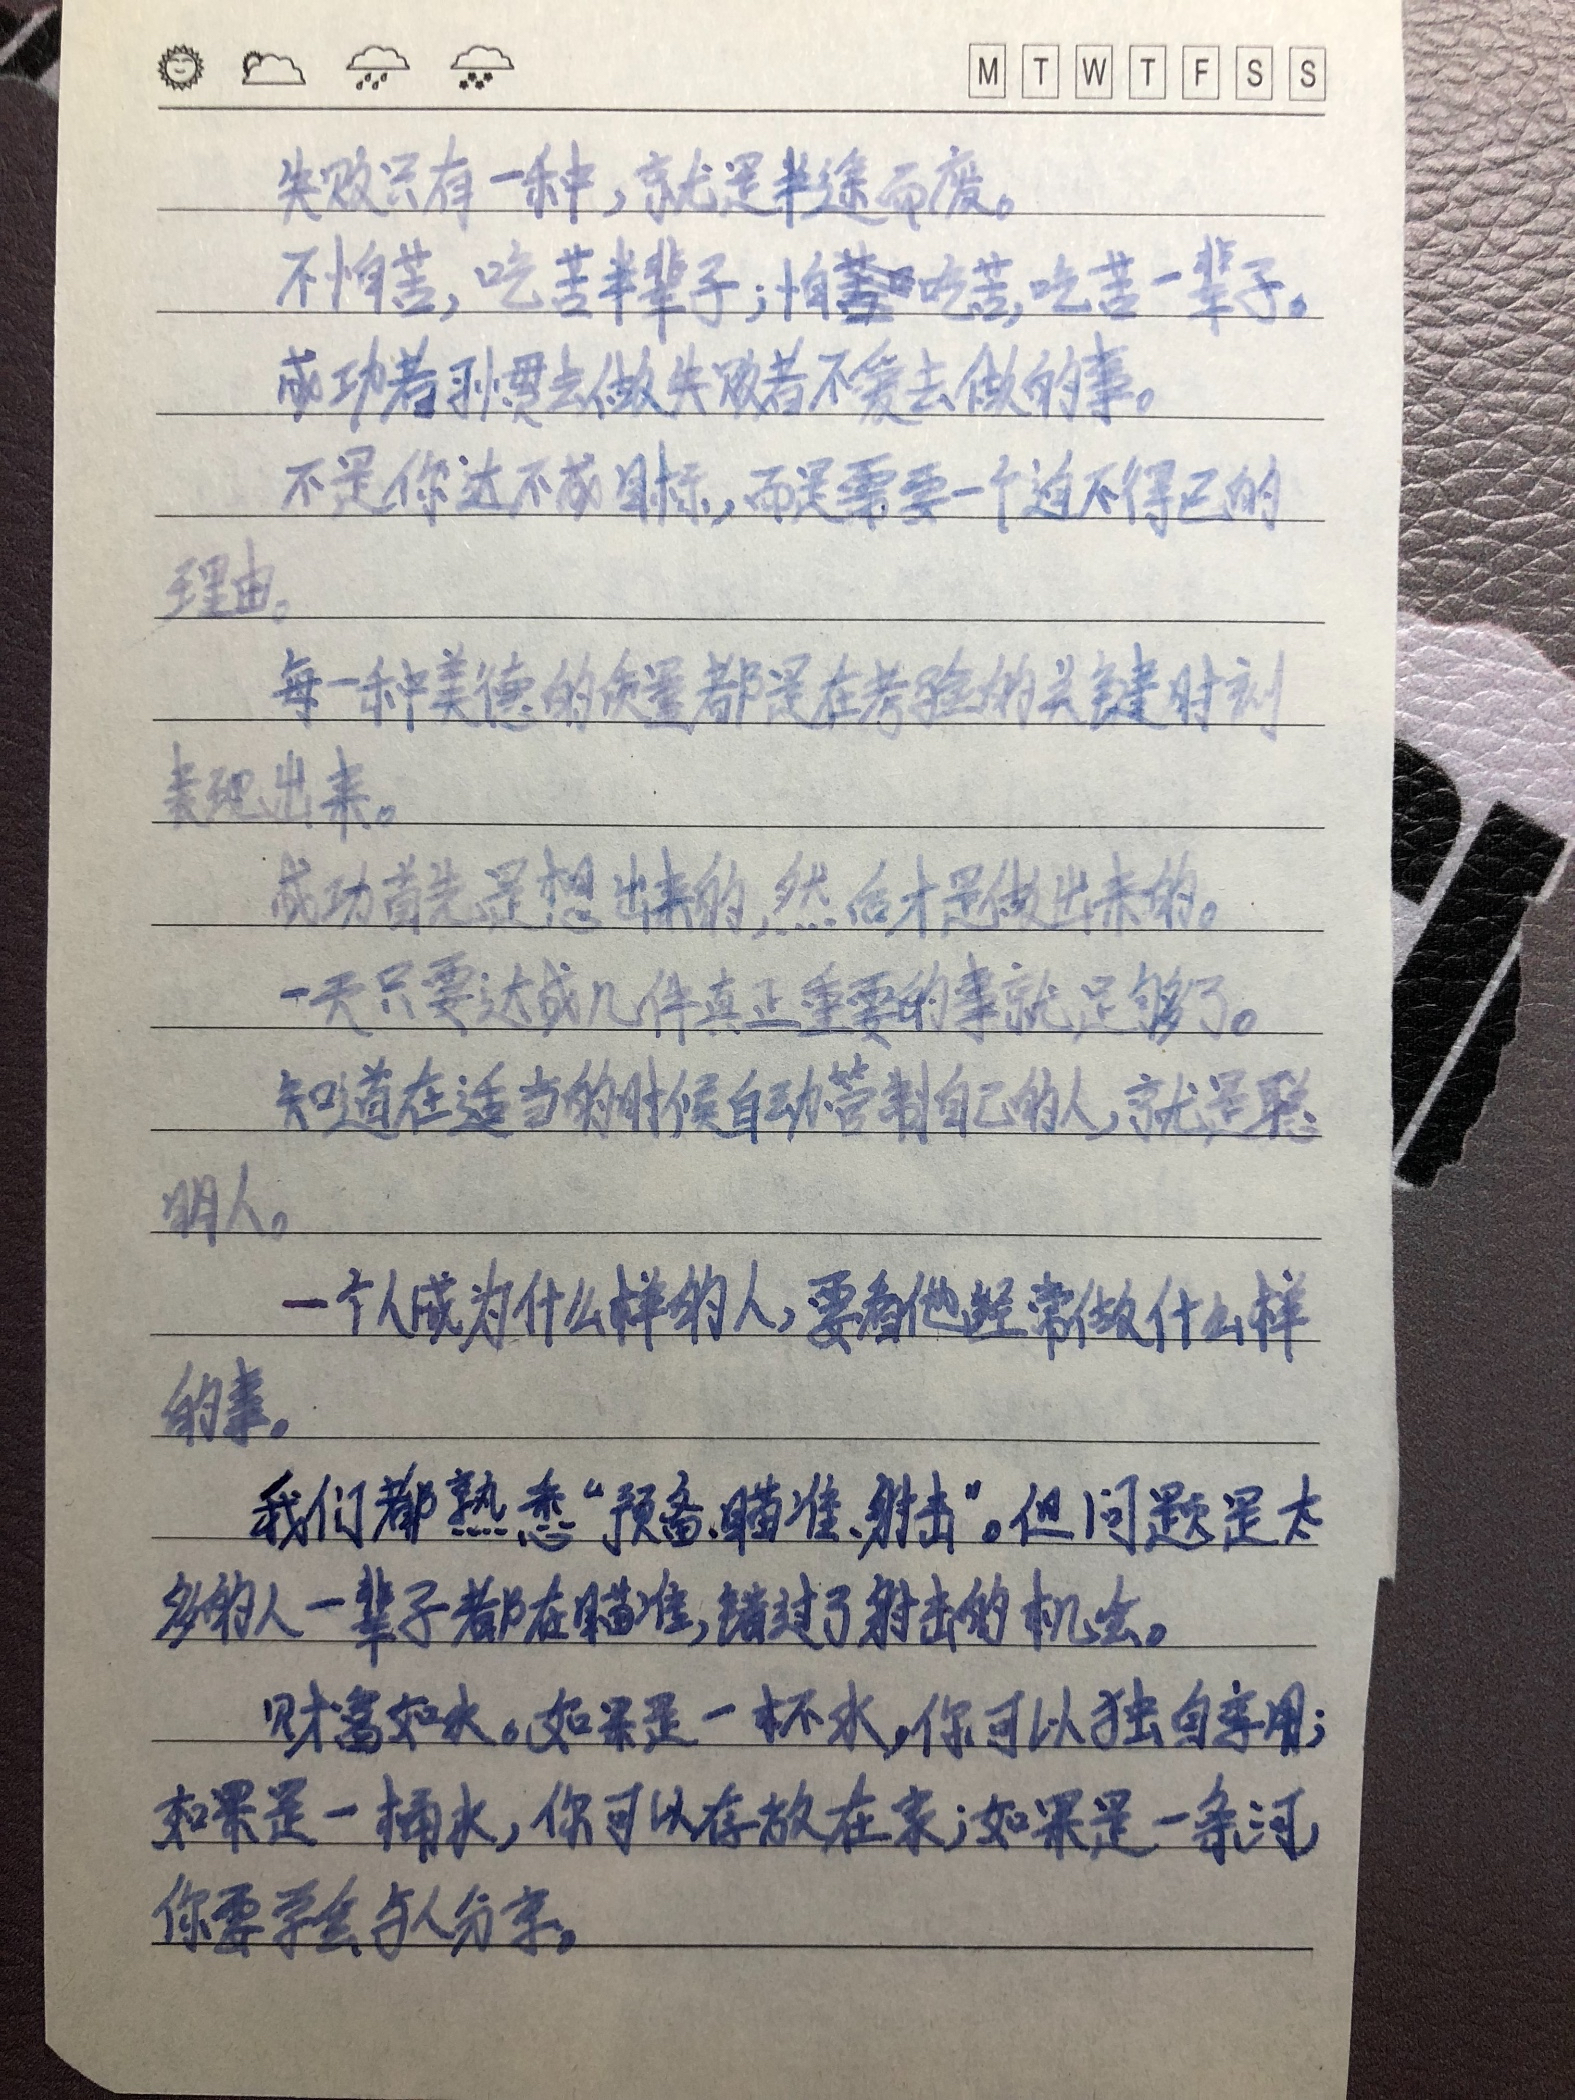 M T W T F S S
失败只有一种，就是半途而废。
不怕苦，吃苦半辈子；怕吃苦，吃苦一辈子。
成功者习惯去做失败者不爱去做的事。
不是你达不成目标，而是需要一个迫不得已的
理由。
每一种美德的质量都是在考验的关键时刻
表现出来。
成功首先是想出来的，然后才是做出来的。
一天只要达成几件真正重要的事就足够了。
知道在适当的时候自动管制自己的人，就是聪
明人。
一个人成为什么样的人，要看他经常做什么样
的事。
我们都熟悉“预备、瞄准、射击”。但问题是太
多的人一辈子都在瞄准，错过了射击的机会。
财富如水。如果是一杯水，你可以独自享用；
如果是一桶水，你可以存放在家；如果是一条河，
你要学会与人分享。